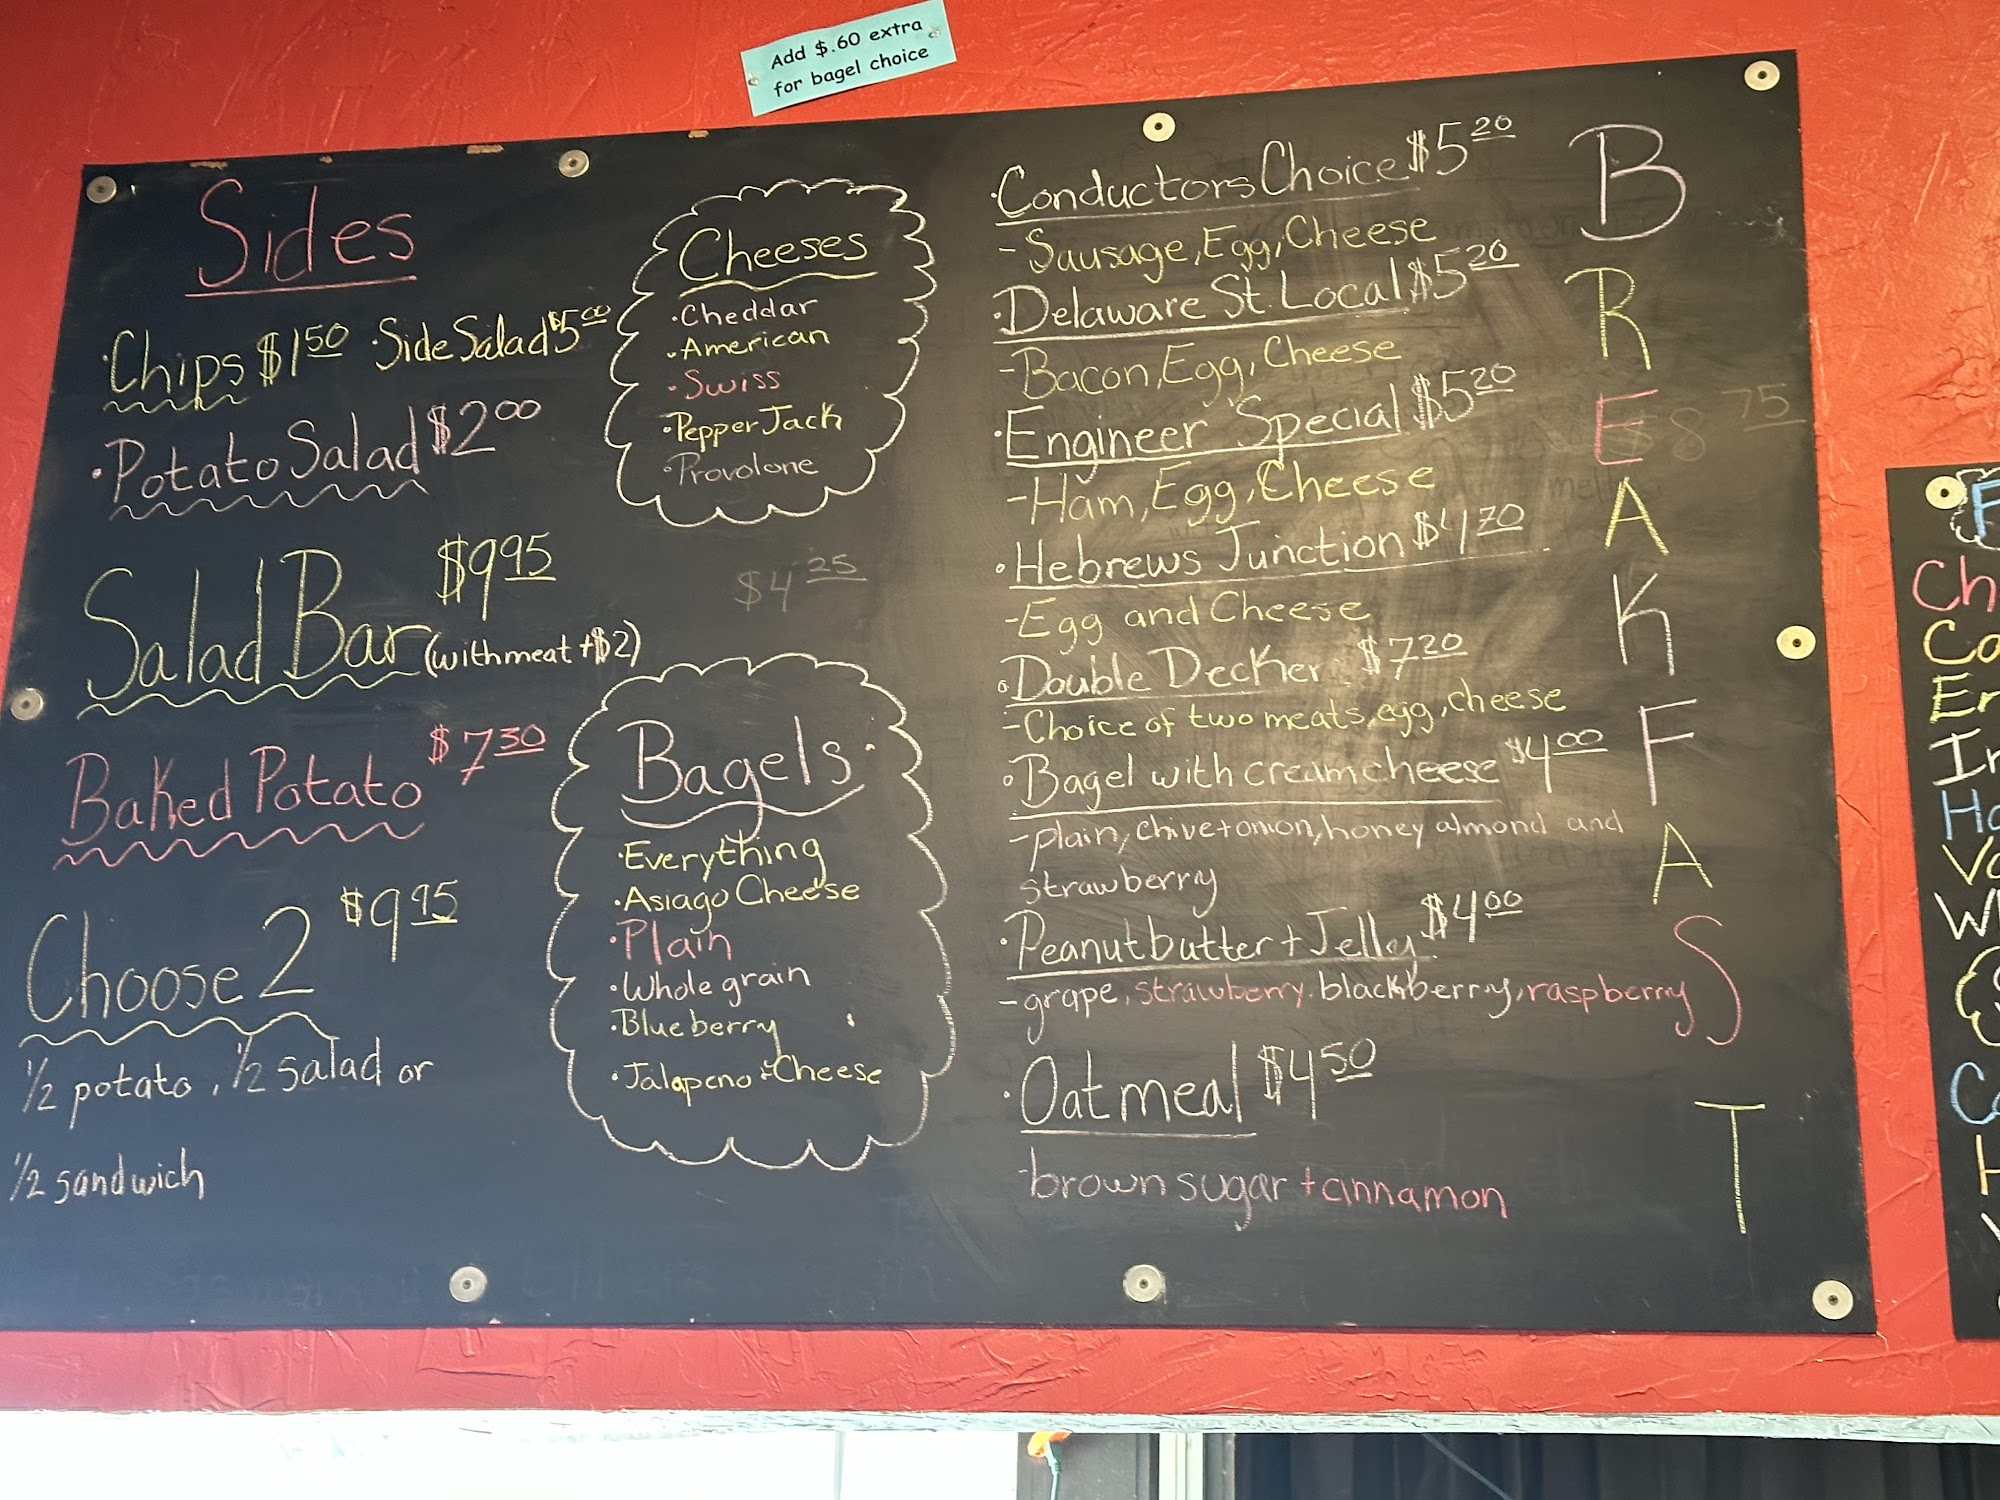 Add $.60 extra
for bagel choice
Sides
·Chips $1.50 ·Side Salad $5.00
·Potato Salad $2.00
Salad Bar $9.95
(with meat +$2)
Baked Potato $7.30
Choose 2 $9.95
1/2 potato, 1/2 salad or
1/2 sandwich
Cheeses
·Cheddar
·American
·Swiss
·Pepper Jack
·Provolone
$4.25
Bagels
·Everything
·Asiago Cheese
·Plain
·Whole grain
·Blueberry
·Jalapeno + Cheese
·Conductors Choice $5.20
-Sausage, Egg, Cheese
·Delaware St. Local $5.20
-Bacon, Egg, Cheese
·Engineer Special $5.20
-Ham, Egg, Cheese
·Hebrews Junction $4.70
-Egg and Cheese
·Double Decker $7.20
-Choice of two meats, egg, cheese
·Bagel with cream cheese $4.00
-plain, chive+onion, honey almond and
strawberry
·Peanut butter + Jelly $4.00
-grape, strawberry, blackberry, raspberry
·Oatmeal $4.50
-brown sugar + cinnamon
BREAKFAST
$8.75